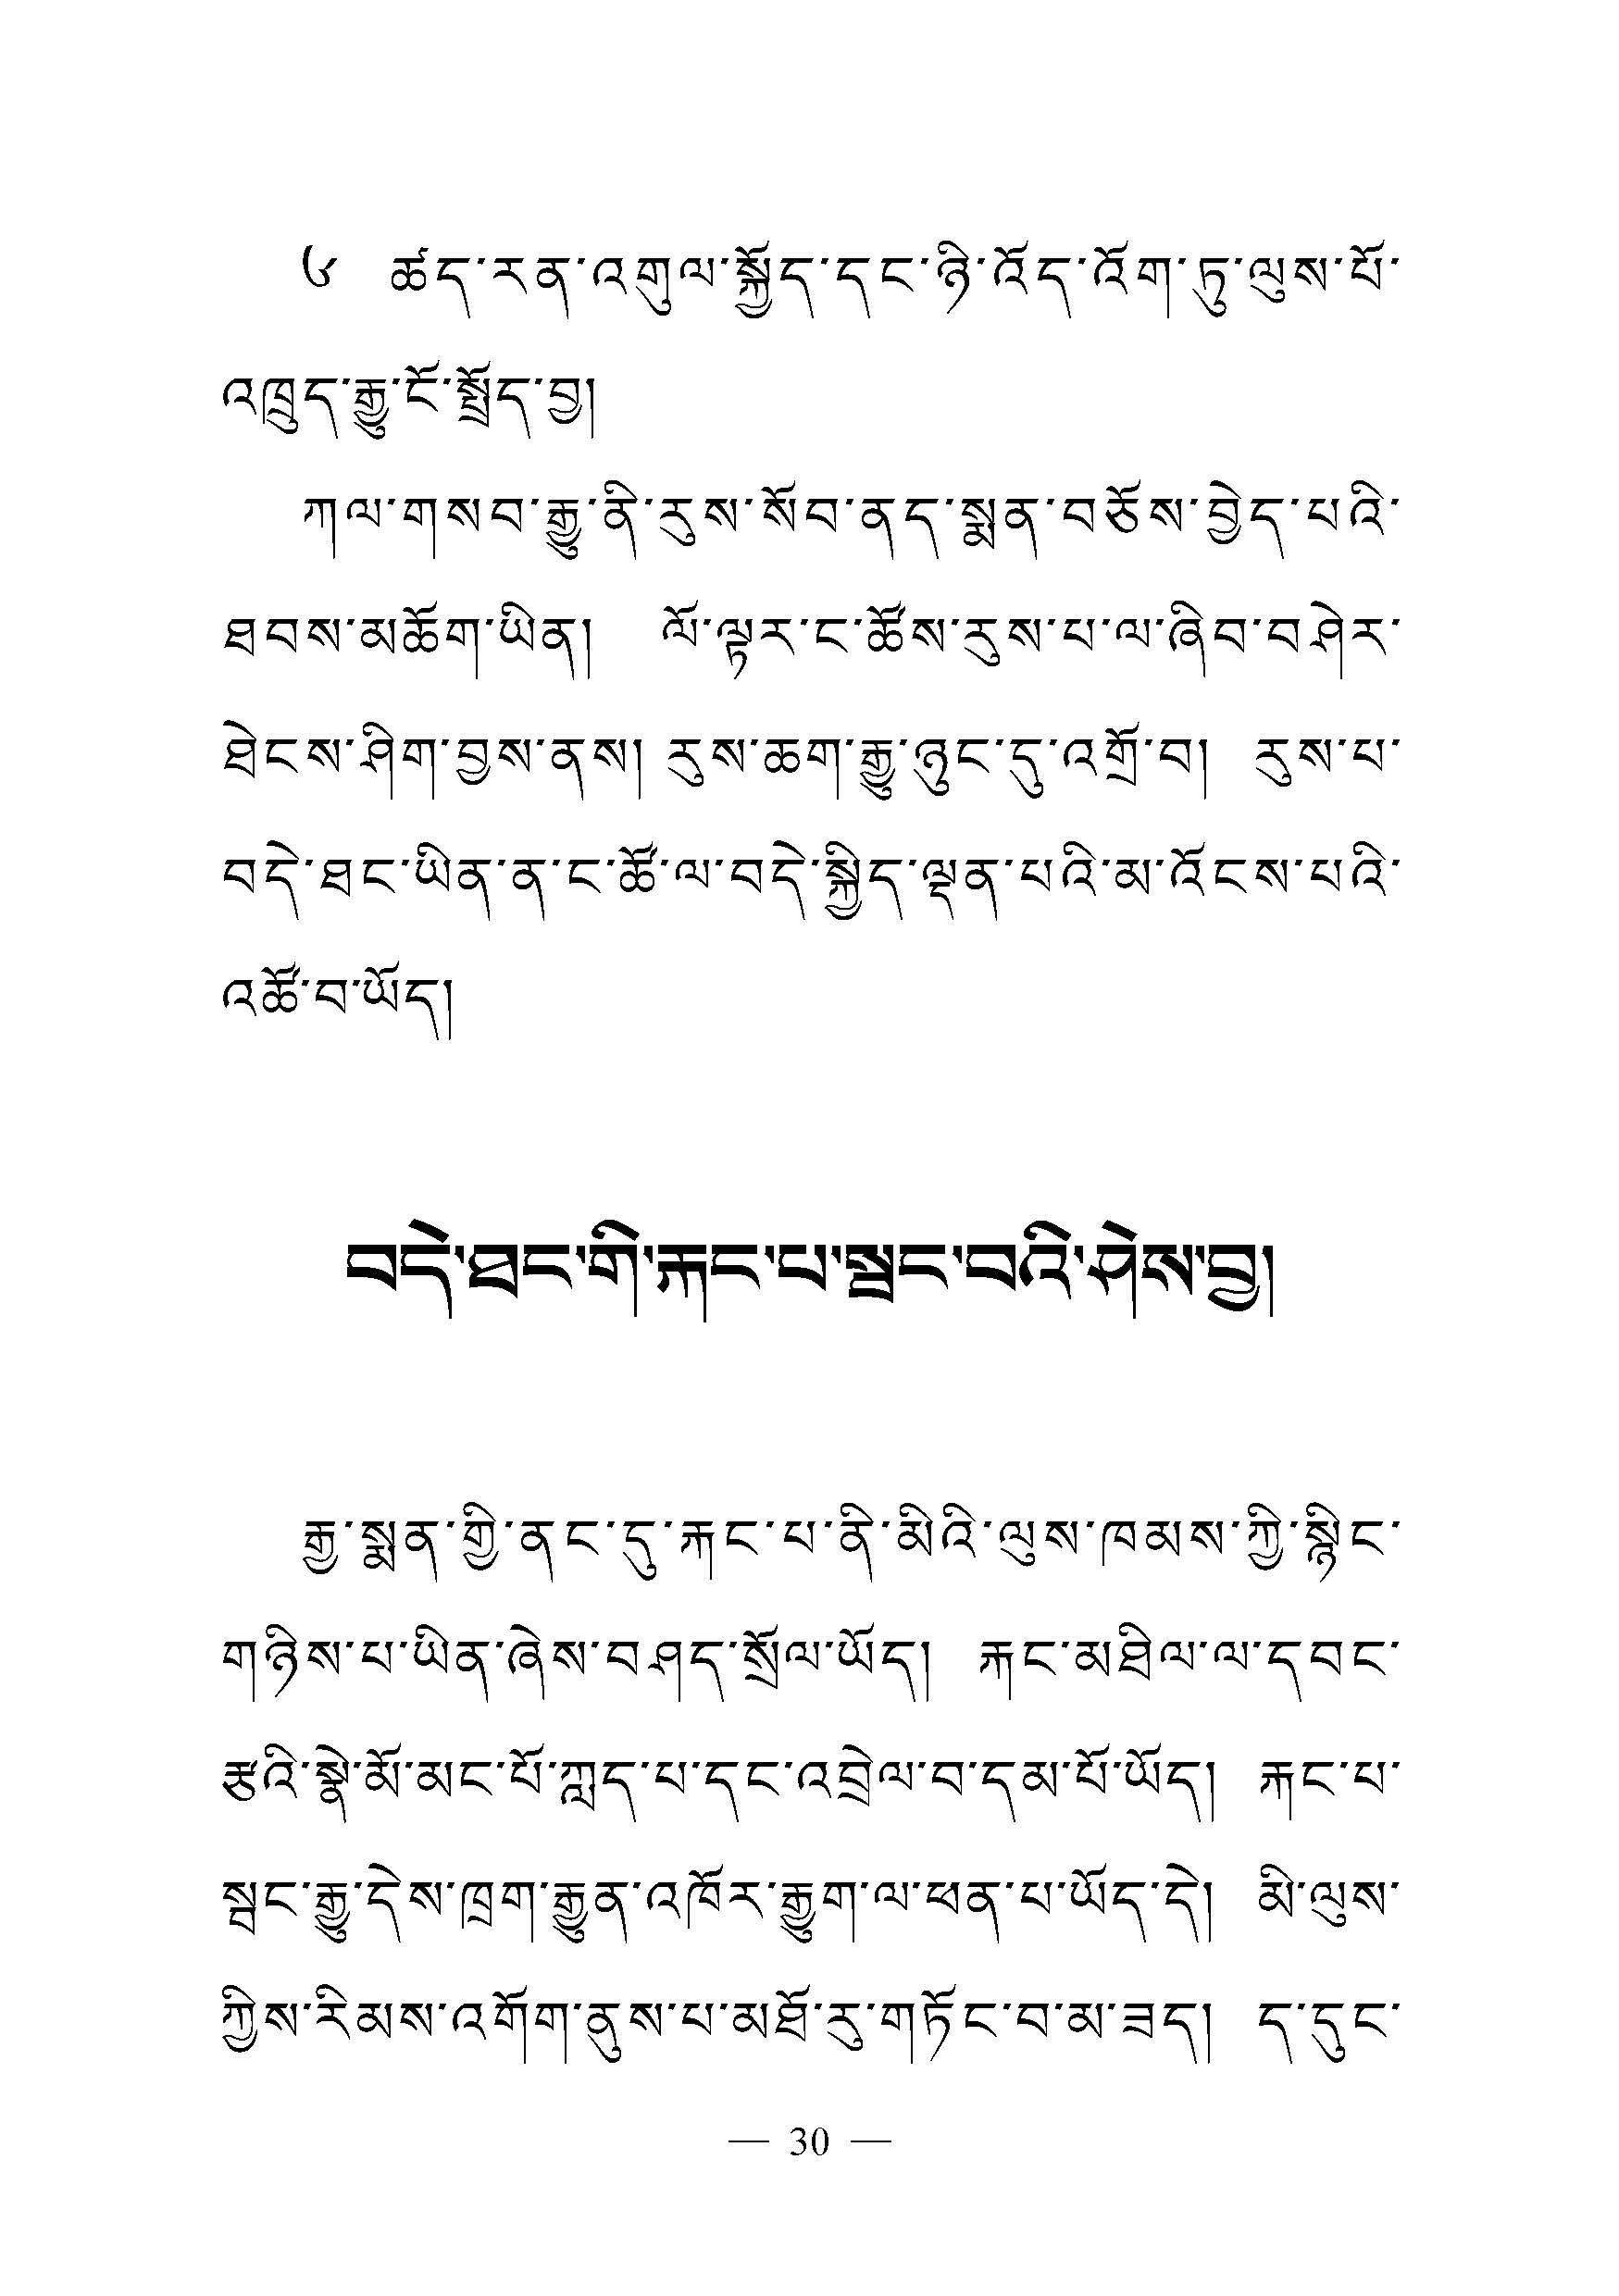 ༦ ཚད་རན་འགུལ་སྐྱོད་དང་ཉི་འོད་འོག་ཏུ་ལུས་པོ་
འཁྲུད་རྒྱུ་ངོ་སྤྲོད་བྱ།
ཀལ་གསབ་རྒྱུ་ནི་རུས་སོབ་ནད་སྨན་བཅོས་བྱེད་པའི་
ཐབས་མཆོག་ཡིན། ལོ་ལྟར་ང་ཚོས་རུས་པ་ལ་ཞིབ་བཤེར་
ཐེངས་ཤིག་བྱས་ནས། རུས་ཆག་རྒྱུ་ཉུང་དུ་འགྲོ་བ། རུས་པ་
བདེ་ཐང་ཡིན་ན་ང་ཚོ་ལ་བདེ་སྐྱིད་ལྡན་པའི་མ་འོངས་པའི་
འཚོ་བ་ཡོད།
བདེ་ཐང་གི་རྐང་པ་སྦང་བའི་ཤེས་བྱ།
རྒྱ་སྨན་གྱི་ནང་དུ་རྐང་པ་ནི་མིའི་ལུས་ཁམས་ཀྱི་སྙིང་
གཉིས་པ་ཡིན་ཞེས་བཤད་སྲོལ་ཡོད། རྐང་མཐིལ་ལ་དབང་
རྩའི་སྣེ་མོ་མང་པོ་ཀླད་པ་དང་འབྲེལ་བ་དམ་པོ་ཡོད། རྐང་པ་
སྦང་རྒྱུ་དེས་ཁྲག་རྒྱུན་འཁོར་རྒྱུག་ལ་ཕན་པ་ཡོད་དེ། མི་ལུས་
ཀྱིས་རིམས་འགོག་ནུས་པ་མཐོ་རུ་གཏོང་བ་མ་ཟད། ད་དུང་
— 30 —